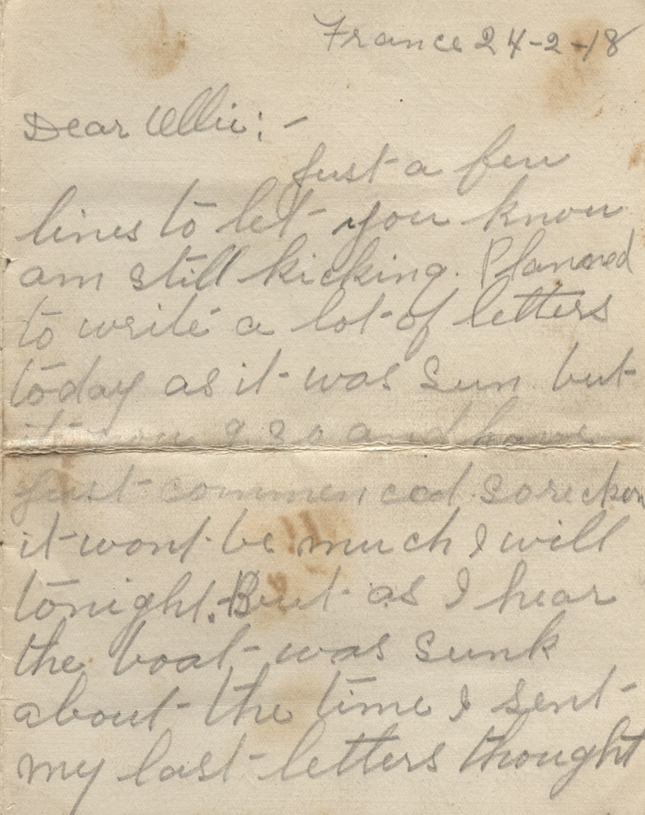 France 24-2-18
Dear Ollie:-
Just a few
lines to let you know
am still kicking. Planned
to write a lot of letters
today as it was Sun but
it now 9 30 and have
just commenced so reckon
it wont be much I will
tonight. But as I hear
the boat was sunk
about the time I sent
my last letters thought